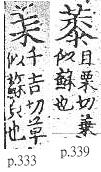 日栗切葉
似蘇也
p.339
千吉切草
似蘇也
p.333